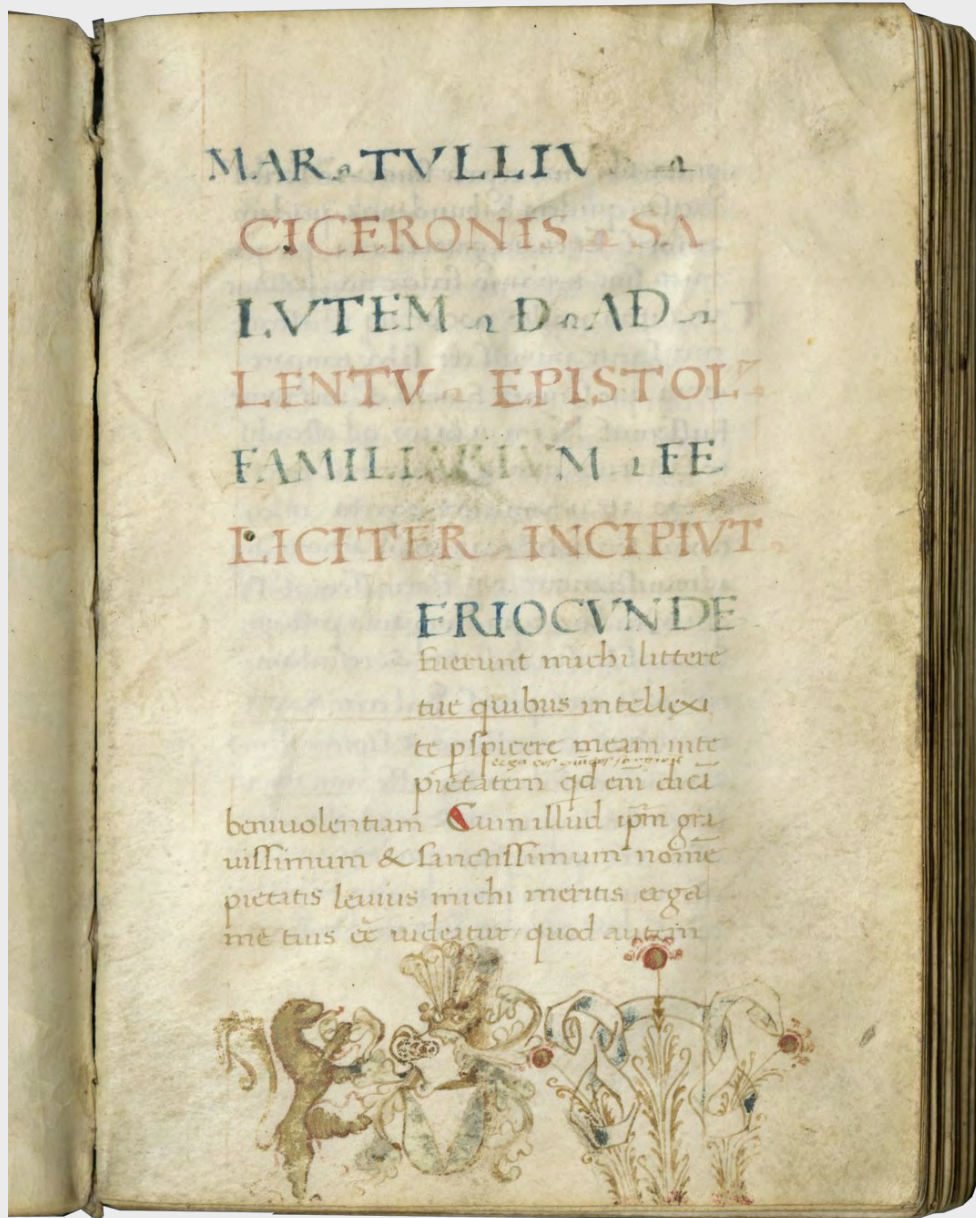 MAR TVLLIV
CICERONIS SA
LVTEM D AD
LENTV EPISTOL
FAMILIARIVM FE
LICITER INCIPIVT
ERIOCVNDE
fuerunt michi littere
tue quibus intellexi
te pspicere meam inte
erga
pietatem qd eni dici
beniuolentiam Cum illud ipm gra
uissimum & sanctissimum nome
pietatis leuius michi meritis erga
me tuis ee uideatur quod autem